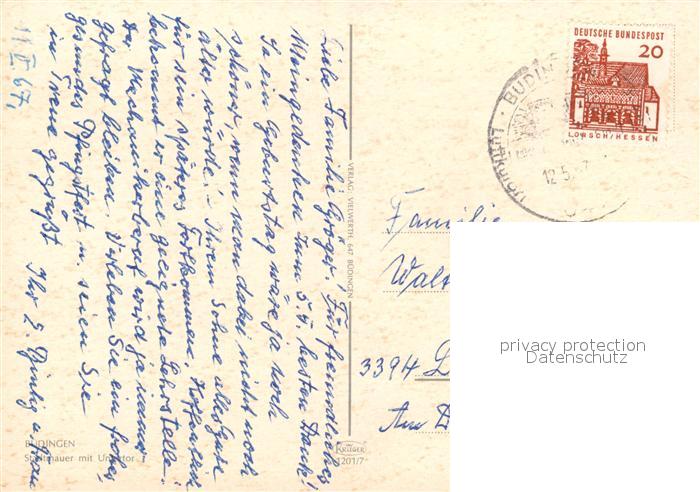 11. V. 67.
Liebe Familie Gröger! Für freundliches
Meingedenken zum 5.4. besten Dank!
So ein Geburtstag wäre ja noch
schöner, wenn man dabei nicht noch
älter würde! – Ihrem Sohne alles Gute
für sein späteres Fortkommen. Hoffentlich
bekommt er eine geeignete Lehrstelle.
Der Mechanikerberuf wird ja immer
gefragt bleiben. Verleben Sie ein frohes,
gesundes Pfingstfest u. seien Sie
in Treue gegrüßt Ihr E.
BÜDINGEN
Stadtmauer mit Untertor
VERLAG: VIEWERTH, 647 BÜDINGEN
KRÜGER
1201/7
DEUTSCHE BUNDESPOST
20
LORSCH/HESSEN
BÜDINGEN
LUFTKURORT
12.5.67
Familie
Walt
3394 L
Am D
privacy protection
Datenschutz